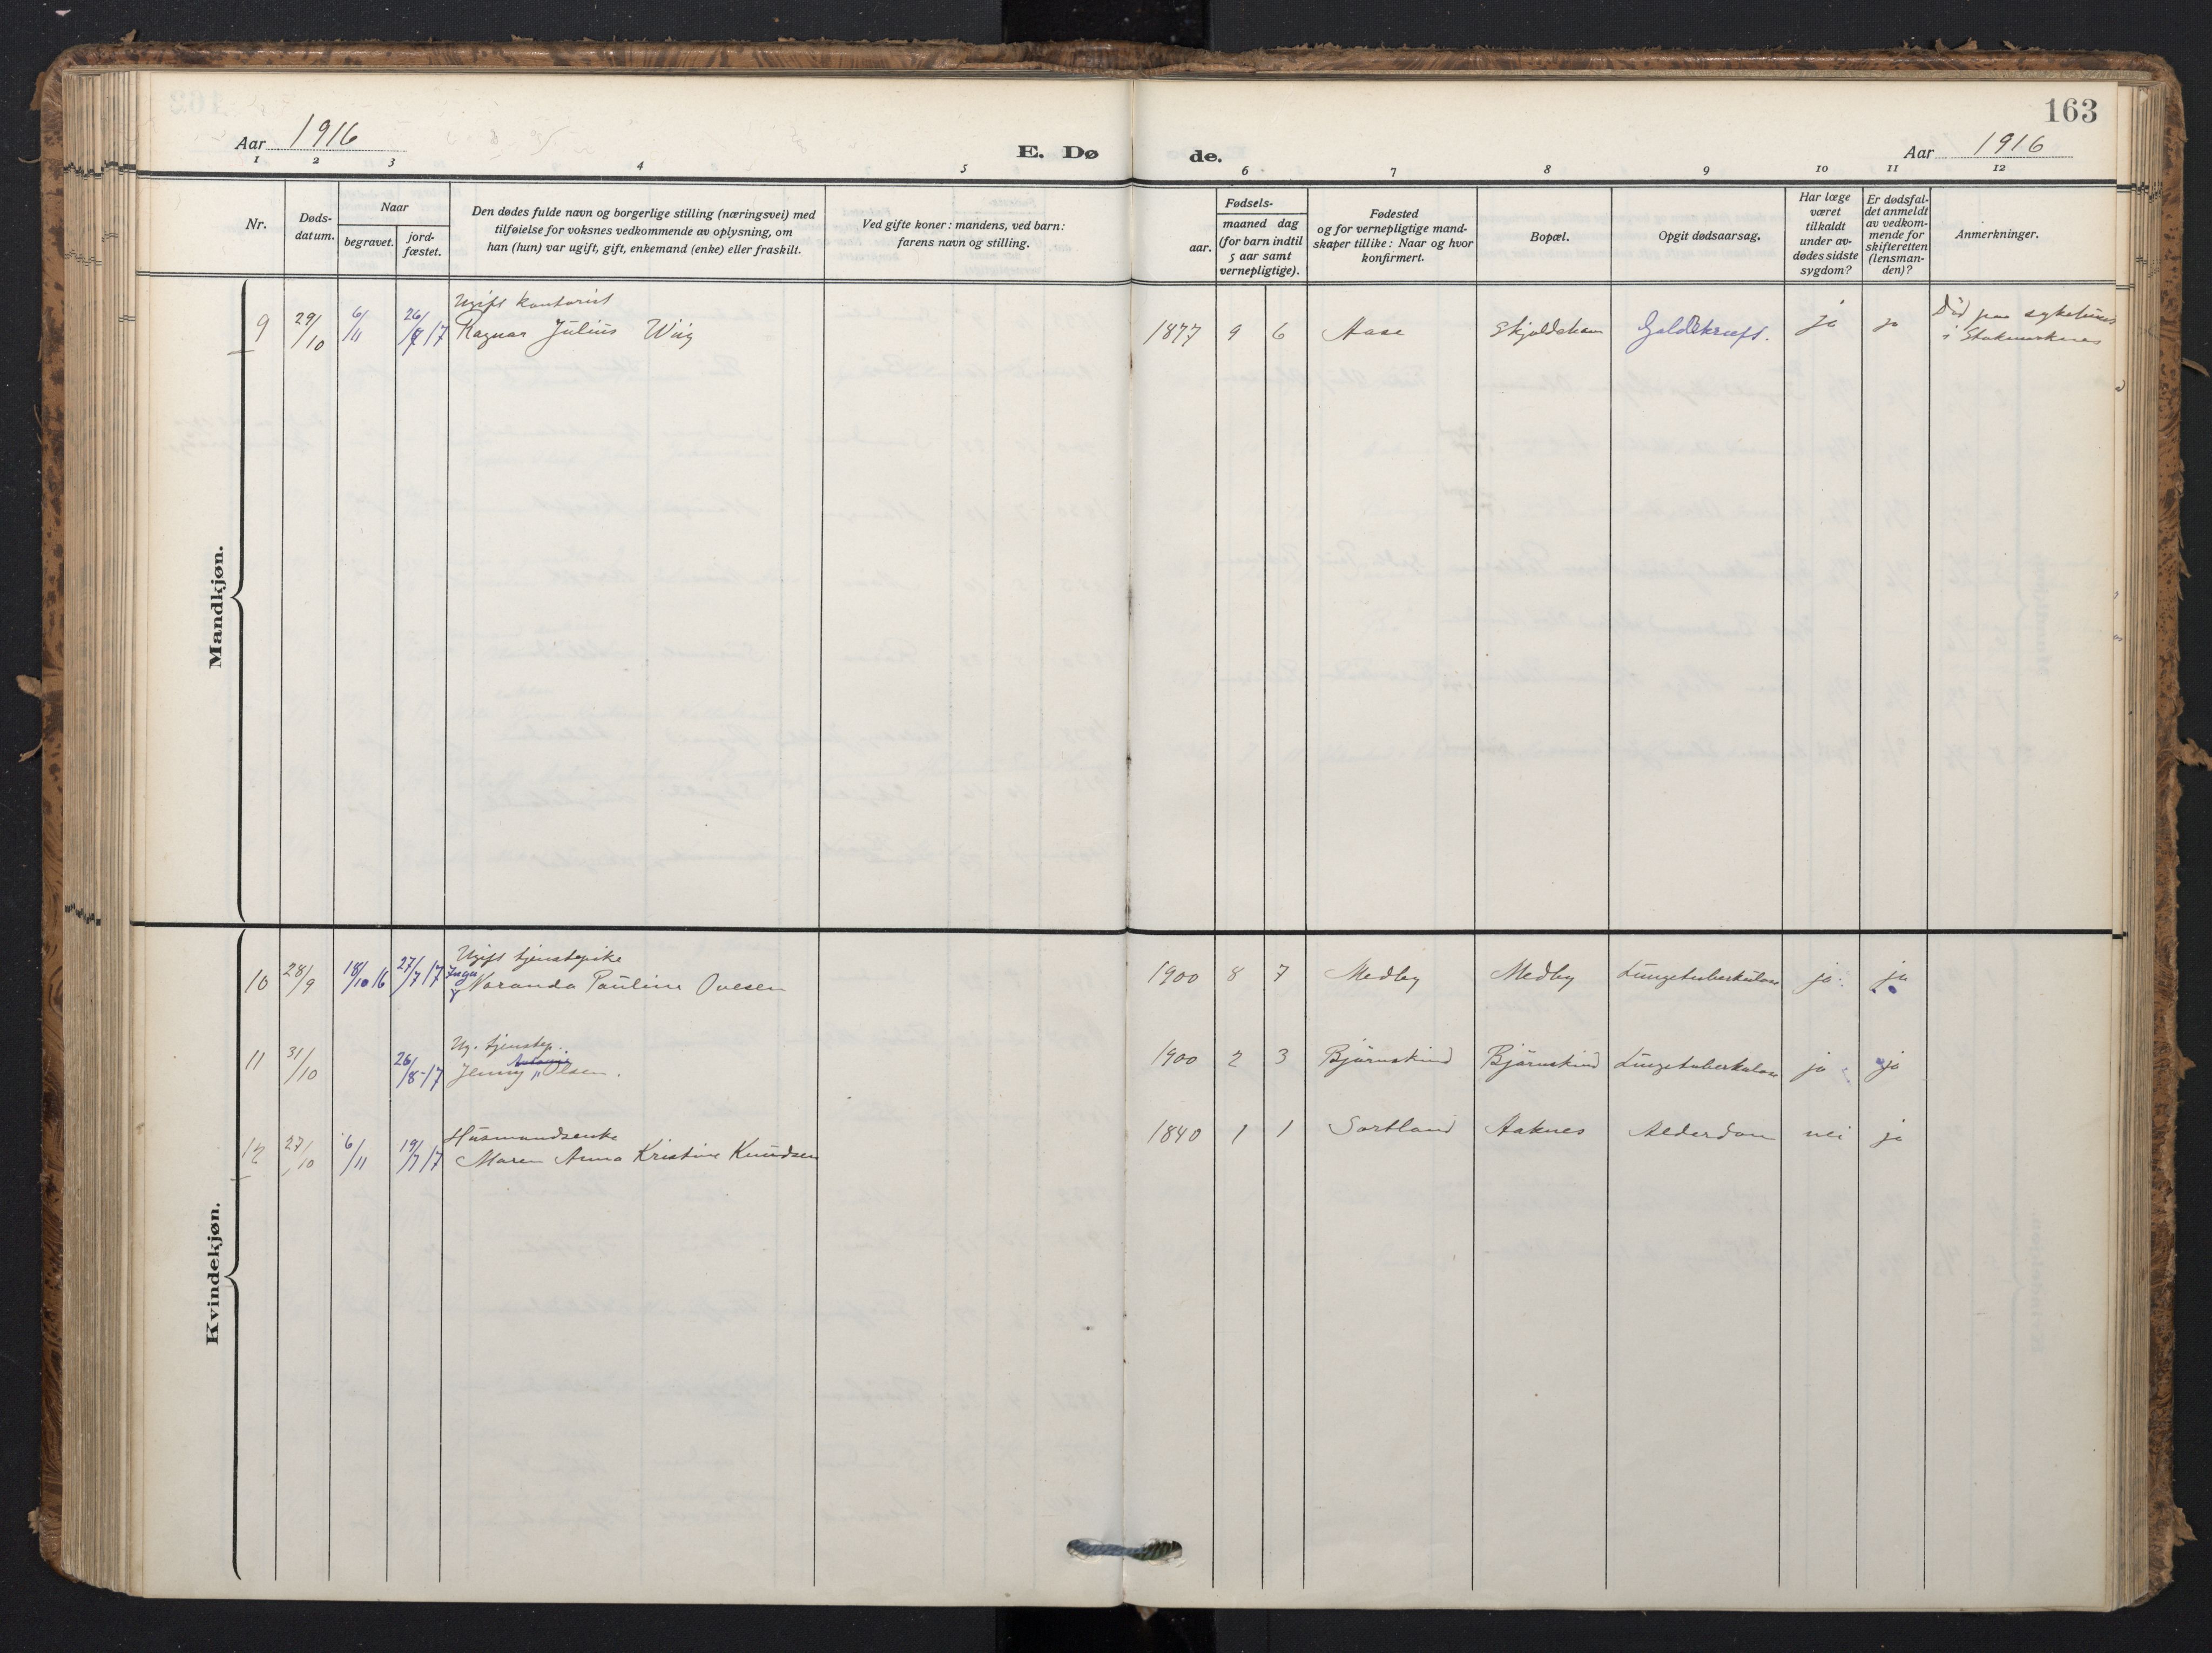 163
Aar 1916
E. Døde.
Aar 1916
1 2 3 4 5 6 7 8 9 10 11 12
Nr.
Døds-
datum.
Naar
begravet.
jord-
fæstet.
Den dødes fulde navn og borgerlige stilling (næringsvei) med
tilføielse for voksnes vedkommende av oplysning, om
han (hun) var ugift, gift, enkemand (enke) eller fraskilt.
Ved gifte koner: mandens, ved barn:
farens navn og stilling.
Fødsels-
aar.
maaned dag
(for barn indtil
5 aar samt
vernepligtige).
Fødested
og for vernepligtige mand-
skaper tillike: Naar og hvor
konfirmert.
Bopæl.
Opgit dødsaarsag.
Har læge
været
tilkaldt
under av-
dødes sidste
sygdom?
Er dødsfal-
det anmeldt
av vedkom-
mende for
skifteretten
(lensman-
den)?
Anmerkninger.
Mandkjøn.
Ugift kontorist
9 29/10 6/11 Ragnar Julius Wiig 1877 9 6 Aase Skjoldehavn ja ja
Død paa sykehuset
i Stokmarknes
Kvindekjøn.
Ugift tjenestepike
10 28/9 18/10 16 27/7 17 Inga Naranda Pauline Ovesen 1900 8 7 Medby Medby Lungetuberkulose ja ja
Ug. tjenestep.
11 31/10 26/8-17 Jenny Olsen. 1900 2 3 Bjørnskind Bjørnskind Lungetuberkulose ja ja
Husmandsenke
12 27/10 6/11 19/7 17 Maren Anna Kristine Knudsen 1840 1 1 Sortland Aaknes Alderdom nei ja